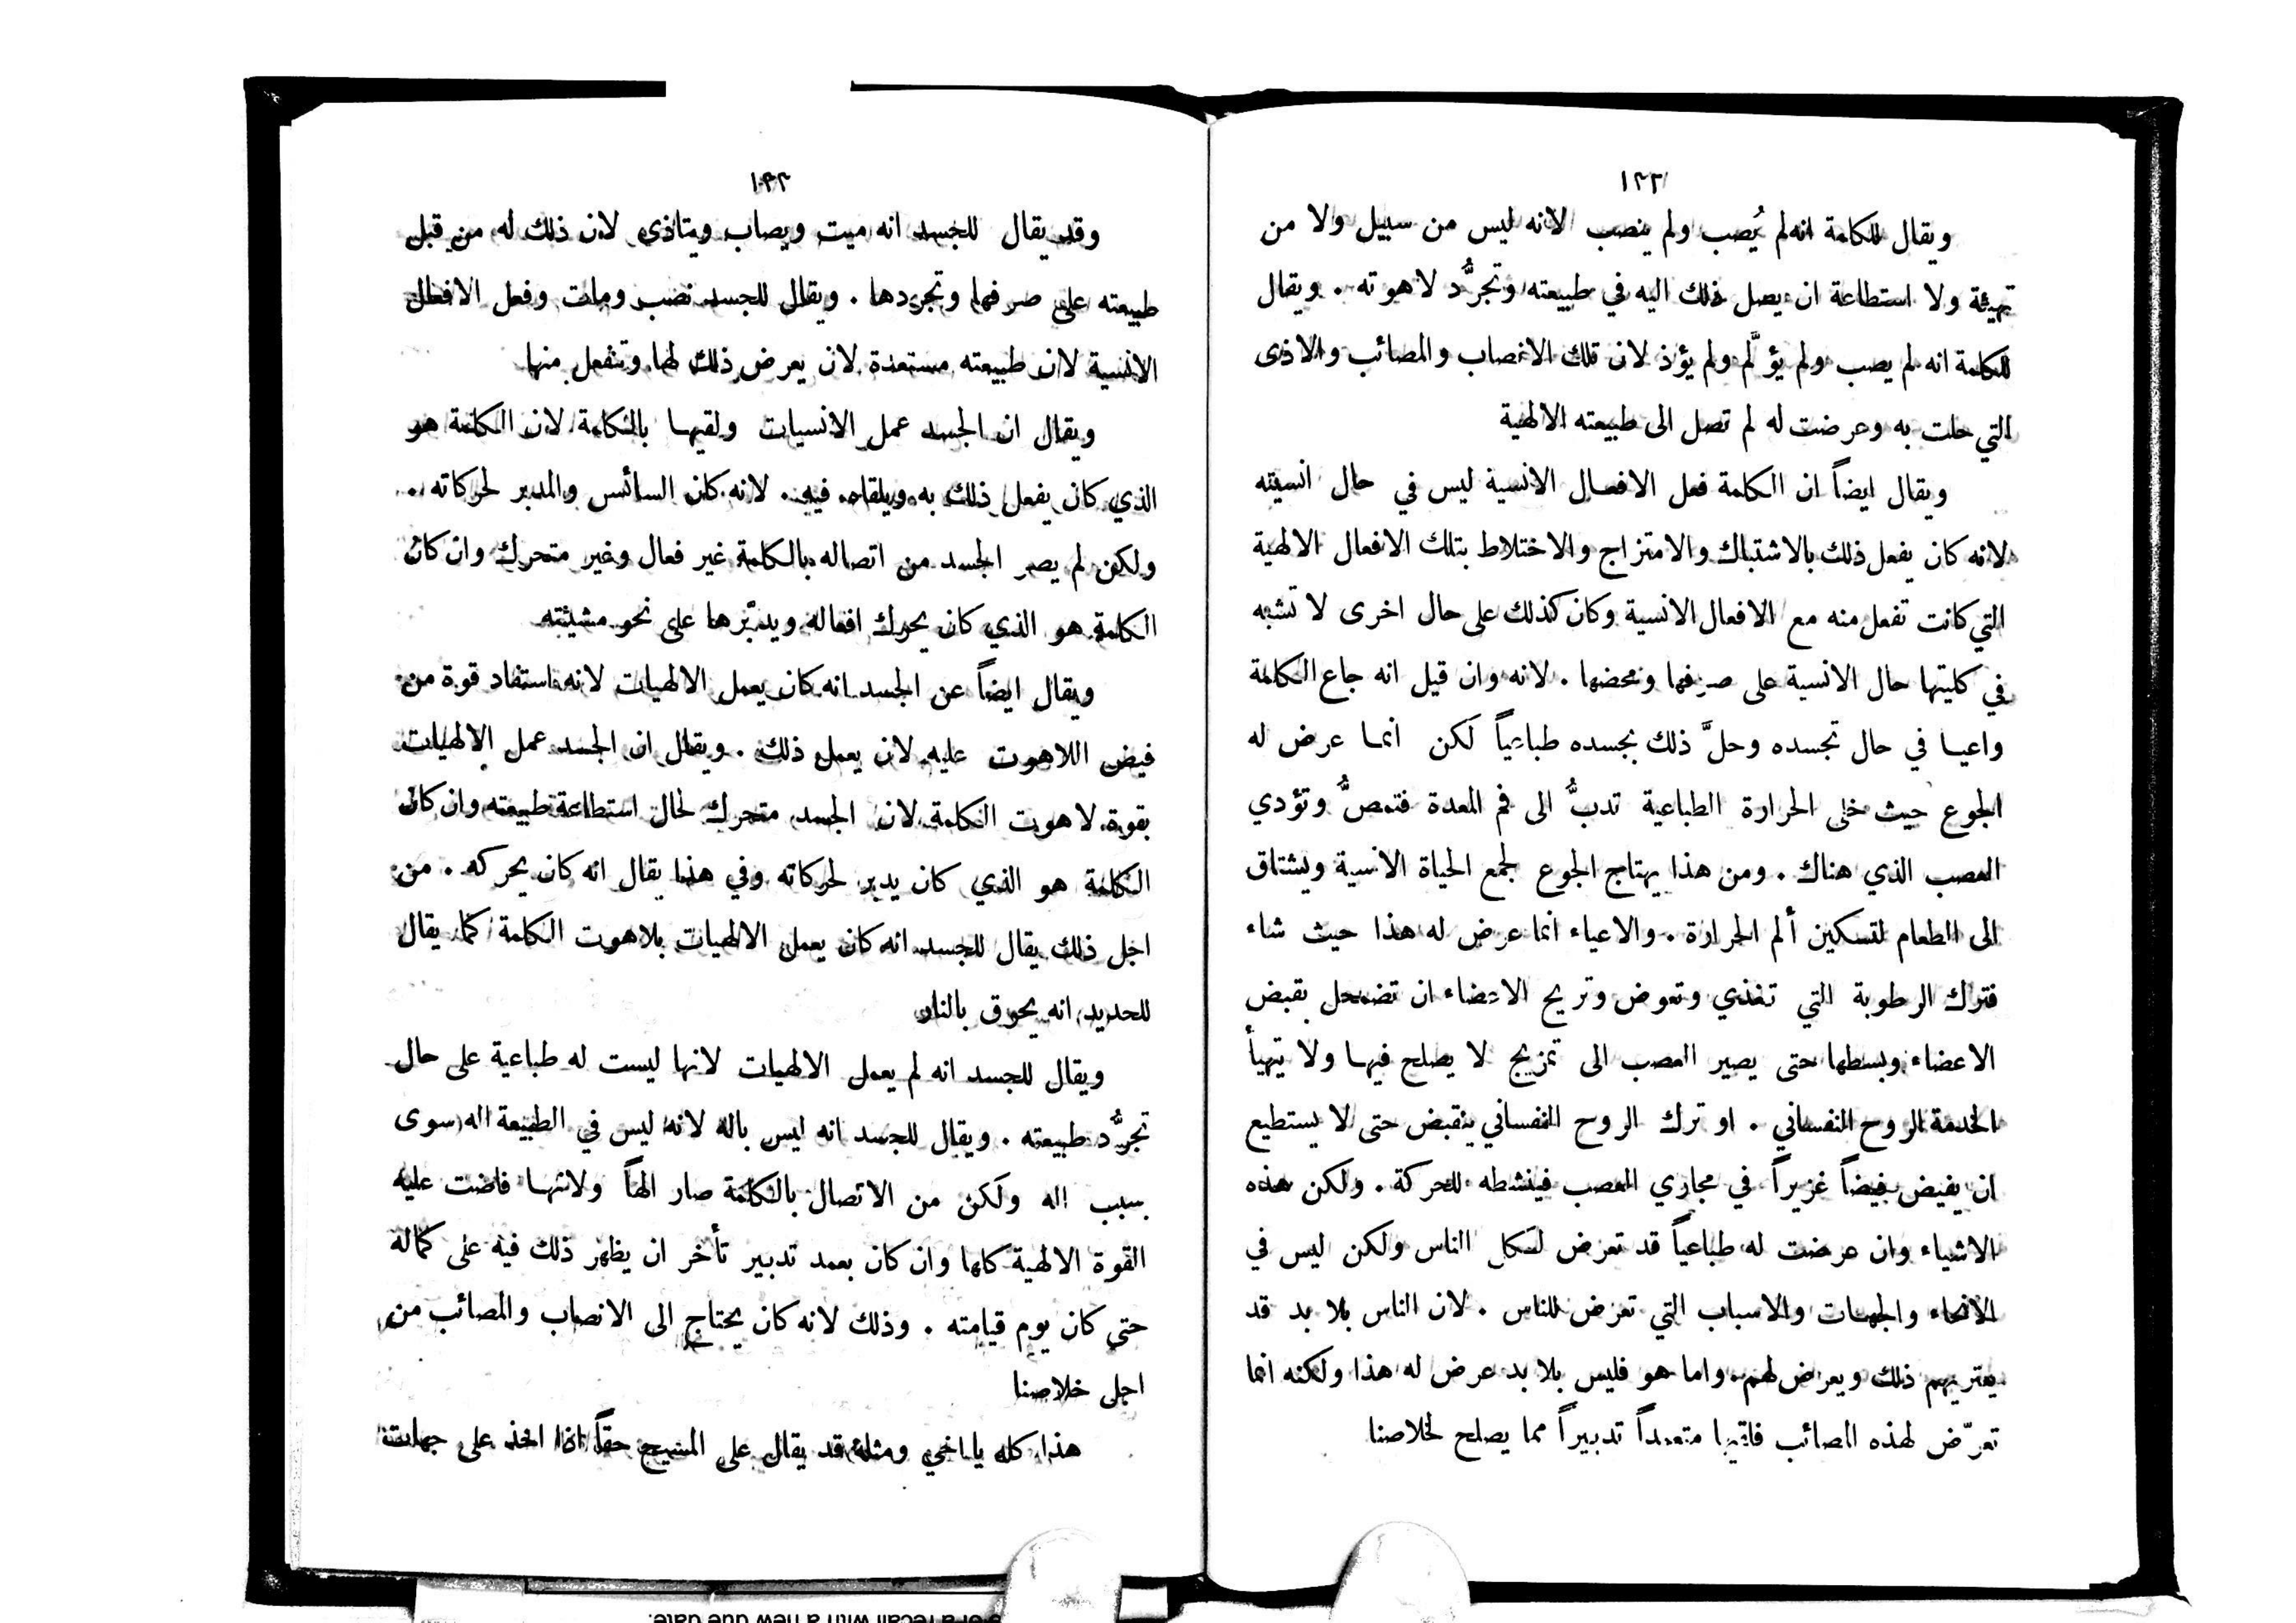 ١٢٣
ويقال للكلمة انه لم يُصب ولم ينصب لانه ليس من سبيل ولا من
تهيئة ولا استطاعة ان يصل ذلك اليه في طبيعته وتجرُّد لاهوته . ويقال
للكلمة انه لم يصب ولم يؤلَّم ولم يؤذ لان تلك الانصاب والمصائب والاذى
التي حلت به وعرضت له لم تصل الى طبيعته الالهية
ويقال ايضاً ان الكلمة فعل الافعال الانسية ليس في حال انسيته
لانه كان يفعل ذلك بالاشتباك والامتزاج والاختلاط بتلك الافعال الالهية
التي كانت تفعل منه مع الافعال الانسية وكان كذلك على حال اخرى لا تشبه
في كليتها حال الانسية على صرفها ومحضها . لانه وان قيل انه جاع الكلمة
واعيا في حال تجسده وحلَّ ذلك بجسده طباعياً لكن انما عرض له
الجوع حيث خلى الحرارة الطباعية تدبُّ الى فم المعدة فتمصُّ وتؤدي
العصب الذي هناك . ومن هذا يهتاج الجوع لجمع الحياة الانسية ويشتاق
الى الطعام لتسكين ألم الحرارة . والاعياء انما عرض له هذا حيث شاء
فترك الرطوبة التي تغذي وتعوض وتريح الاعضاء ان تضمحل بقبض
الاعضاء وبسطها حتى يصير العصب الى تمزيج لا يصلح فيها ولا يتهيأ
لخدمة الروح النفساني . او ترك الروح النفساني ينقبض حتى لا يستطيع
ان يفيض فيضاً غزيراً في مجاري العصب فينشطه للحركة . ولكن هذه
الاشياء وان عرضت له طباعياً قد تعرض لكل الناس ولكن ليس في
الانحاء والجهات والاسباب التي تعرض للناس . لان الناس بلا بد قد
يعتريهم ذلك ويعرض لهم واما هو فليس بلا بد عرض له هذا ولكنه انما
تعرّض لهذه المصائب فلقيها متعمداً تدبيراً مما يصلح لخلاصنا
وقد يقال للجسد انه ميت ويصاب ويتاذى لان ذلك له من قبل
طبيعته على صرفها وتجردها . ويقال للجسد نصب ومات وفعل الافعال
الانسية لان طبيعته مستعدة لان يعرض ذلك لها وتنفعل منها
ويقال ان الجسد عمل الانسيات ولقيها بالكلمة لان الكلمة هو
الذي كان يفعل ذلك به ويلقاه فيه . لانه كان السائس والمدبر لحركاته .
ولكن لم يصر الجسد من اتصاله بالكلمة غير فعال وغير متحرك وان كان
الكلمة هو الذي كان يحرك افعاله ويدبّرها على نحو مشيئته
ويقال ايضاً عن الجسد انه كان يعمل الالهيات لانه استفاد قوة من
فيض اللاهوت عليه لان يعمل ذلك . ويقال ان الجسد عمل الالهيات
بقوة لاهوت الكلمة لان الجسد متحرك لحال استطاعة طبيعته وان كان
الكلمة هو الذي كان يدبر لحركاته وفي هذا يقال انه كان يحركه . من
اجل ذلك يقال للجسد انه كان يعمل الالهيات بلاهوت الكلمة كما يقال
للحديد انه يحرق بالنار
ويقال للجسد انه لم يعمل الالهيات لانها ليست له طباعية على حال
تجرُّد طبيعته . ويقال للجسد انه ليس باله لانه ليس في الطبيعة اله سوى
بسبب اله ولكن من الاتصال بالكلمة صار الهاً ولانها فاضت عليه
القوة الالهية كلها وان كان بعمد تدبير تأخر ان يظهر ذلك فيه على كماله
حتى كان يوم قيامته . وذلك لانه كان يحتاج الى الانصاب والمصائب من
اجل خلاصنا
هذا كله يا اخي ومثله قد يقال على المسيح حقاً اذا اخذ على جهات